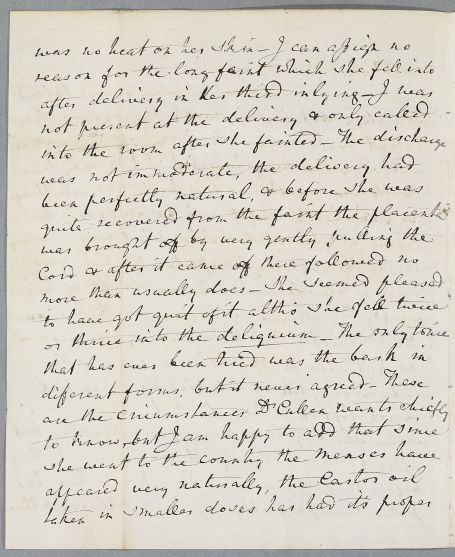 was no heat on her Skin – I can assign no
reason for the long faint which she fell into
after delivery in her third inlying – I was
not present at the delivery & only called
into the room after she fainted – The discharge
was not immoderate, the delivery had
been perfectly natural, & before she was
quite recovered from the faint the placenta
was brought off by very gently pulling the
Cord & after it came off there followed no
more than usually does – She seemed pleased
to have got quit of it altho she fell twice
or thrice into the deliquium – The only tonic
that has ever been tried was the bark in
different forms, but it never agreed – These
are the Circumstances Dr Cullen wants chiefly
to know, but I am happy to add that since
she went to the country the Menses have
appeared very naturally, the Castor oil
taken in smaller doses has had its proper